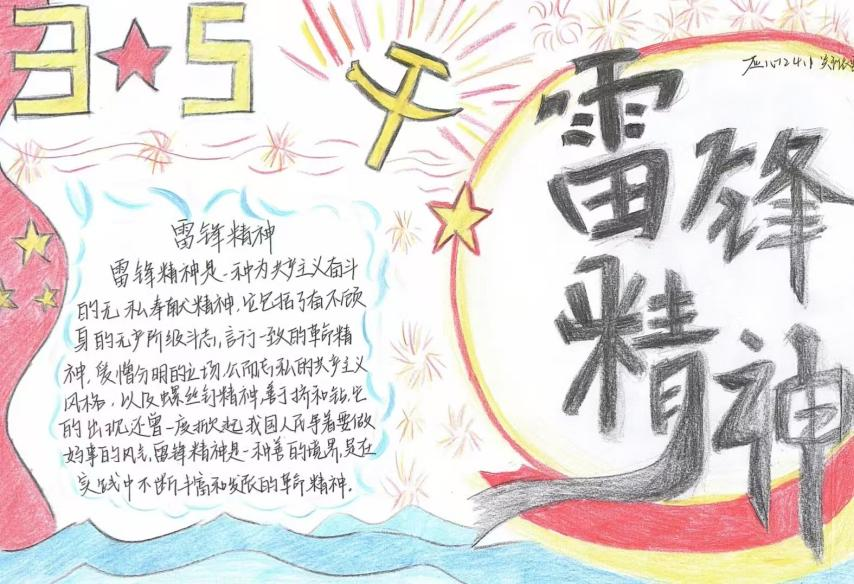 3★5
雷锋
精神
雷锋精神
雷锋精神是一种为共产主义奋斗
的无私奉献精神,它包括了奋不顾
身的无产阶级斗志,言行一致的革命精
神,爱憎分明的立场,公而忘私的共产主义
风格,以及螺丝钉精神,善于挤和钻,它
的出现还曾一度掀起我国人民争着要做
好事的风气,雷锋精神是一种善的境界,是在
实践中不断丰富和发展的革命精神.